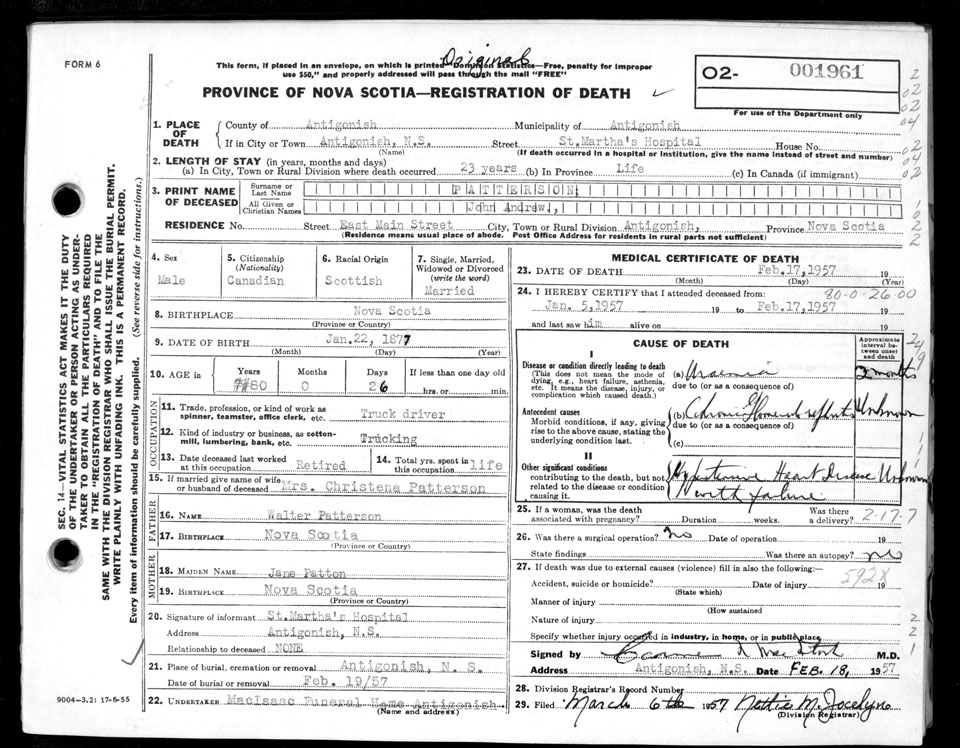 FORM 6
Original
This form, if placed in an envelope, on which is printed "Dominion Statistics—Free, penalty for improper
use $50," and properly addressed will pass through the mail "FREE"
PROVINCE OF NOVA SCOTIA—REGISTRATION OF DEATH
02- 001961
For use of the Department only
1. PLACE OF DEATH
County of Antigonish Municipality of Antigonish
If in City or Town Antigonish, N.S. Street St.Martha's Hospital House No.
(Name) (If death occurred in a hospital or institution, give the name instead of street and number)
2. LENGTH OF STAY (in years, months and days)
(a) In City, Town or Rural Division where death occurred 23 years (b) In Province Life (c) In Canada (if immigrant)
3. PRINT NAME OF DECEASED
Surname or Last Name PATTERSON
All Given or Christian Names John Andrew,
RESIDENCE No. Street East Main Street City, Town or Rural Division Antigonish, Province Nova Scotia
(Residence means usual place of abode. Post Office Address for residents in rural parts not sufficient)
4. Sex
Male
5. Citizenship
(Nationality)
Canadian
6. Racial Origin
Scottish
7. Single, Married,
Widowed or Divorced
(write the word)
Married
8. BIRTHPLACE Nova Scotia
(Province or Country)
9. DATE OF BIRTH Jan.22, 1877
(Month) (Day) (Year)
10. AGE in
Years Months Days If less than one day old
80 0 26 hrs. or min.
OCCUPATION
11. Trade, profession, or kind of work as
spinner, teamster, office clerk, etc. Truck driver
12. Kind of industry or business, as cotton-
mill, lumbering, bank, etc. Trucking
13. Date deceased last worked
at this occupation Retired
14. Total yrs. spent in
this occupation life
15. If married give name of wife
or husband of deceased Mrs. Christena Patterson
FATHER
16. NAME Walter Patterson
17. BIRTHPLACE Nova Scotia
(Province or Country)
MOTHER
18. MAIDEN NAME Jane Patton
19. BIRTHPLACE Nova Scotia
(Province or Country)
20. Signature of informant St.Martha's Hospital
Address Antigonish, N.S.
Relationship to deceased NONE
21. Place of burial, cremation or removal Antigonish, N. S.
Date of burial or removal Feb. 19/57
22. UNDERTAKER MacIsaac Funeral Home Antigonish
(Name and address)
MEDICAL CERTIFICATE OF DEATH
23. DATE OF DEATH Feb.17,1957 19
(Month) (Day) (Year)
24. I HEREBY CERTIFY that I attended deceased from: 80-0-26-00
Jan. 5,1957 19 to Feb.17,1957 19
and last saw him alive on 19
CAUSE OF DEATH
Approximate
interval be-
tween onset
and death
I
Disease or condition directly leading to death
(This does not mean the mode of
dying, e.g., heart failure, asthenia,
etc. It means the disease, injury, or
complication which caused death.)
(a) Uraemia 2 months
due to (or as a consequence of)
Antecedent causes
Morbid conditions, if any, giving
rise to the above cause, stating the
underlying condition last.
(b) Chronic Unknown
due to (or as a consequence of)
(c)
II
Other significant conditions
contributing to the death, but not
related to the disease or condition
causing it.
Hypertensive Heart Disease Unknown
with failure
25. If a woman, was the death
associated with pregnancy? Duration weeks. Was there
a delivery? 2-17-7
26. Was there a surgical operation? no Date of operation 19
State findings Was there an autopsy? no
27. If death was due to external causes (violence) fill in also the following:—
592X
Accident, suicide or homicide? Date of injury 19
(State which)
Manner of injury
(How sustained
Nature of injury
Specify whether injury occurred in industry, in home, or in public place
Signed by M.D.
Address Antigonish, N.S. Date FEB. 18, 1957
28. Division Registrar's Record Number
29. Filed March 6th 1957 Nettie M. Jocelyn
(Division Registrar)
SEC. 14—VITAL STATISTICS ACT MAKES IT THE DUTY
OF THE UNDERTAKER OR PERSON ACTING AS UNDER-
TAKER TO OBTAIN ALL THE PARTICULARS REQUIRED
IN THE "REGISTRATION OF DEATH" AND TO FILE THE
SAME WITH THE DIVISION REGISTRAR WHO SHALL ISSUE THE BURIAL PERMIT.
WRITE PLAINLY WITH UNFADING INK. THIS IS A PERMANENT RECORD.
Every item of information should be carefully supplied. (See reverse side for instructions.)
9004-3.2: 17-6-55